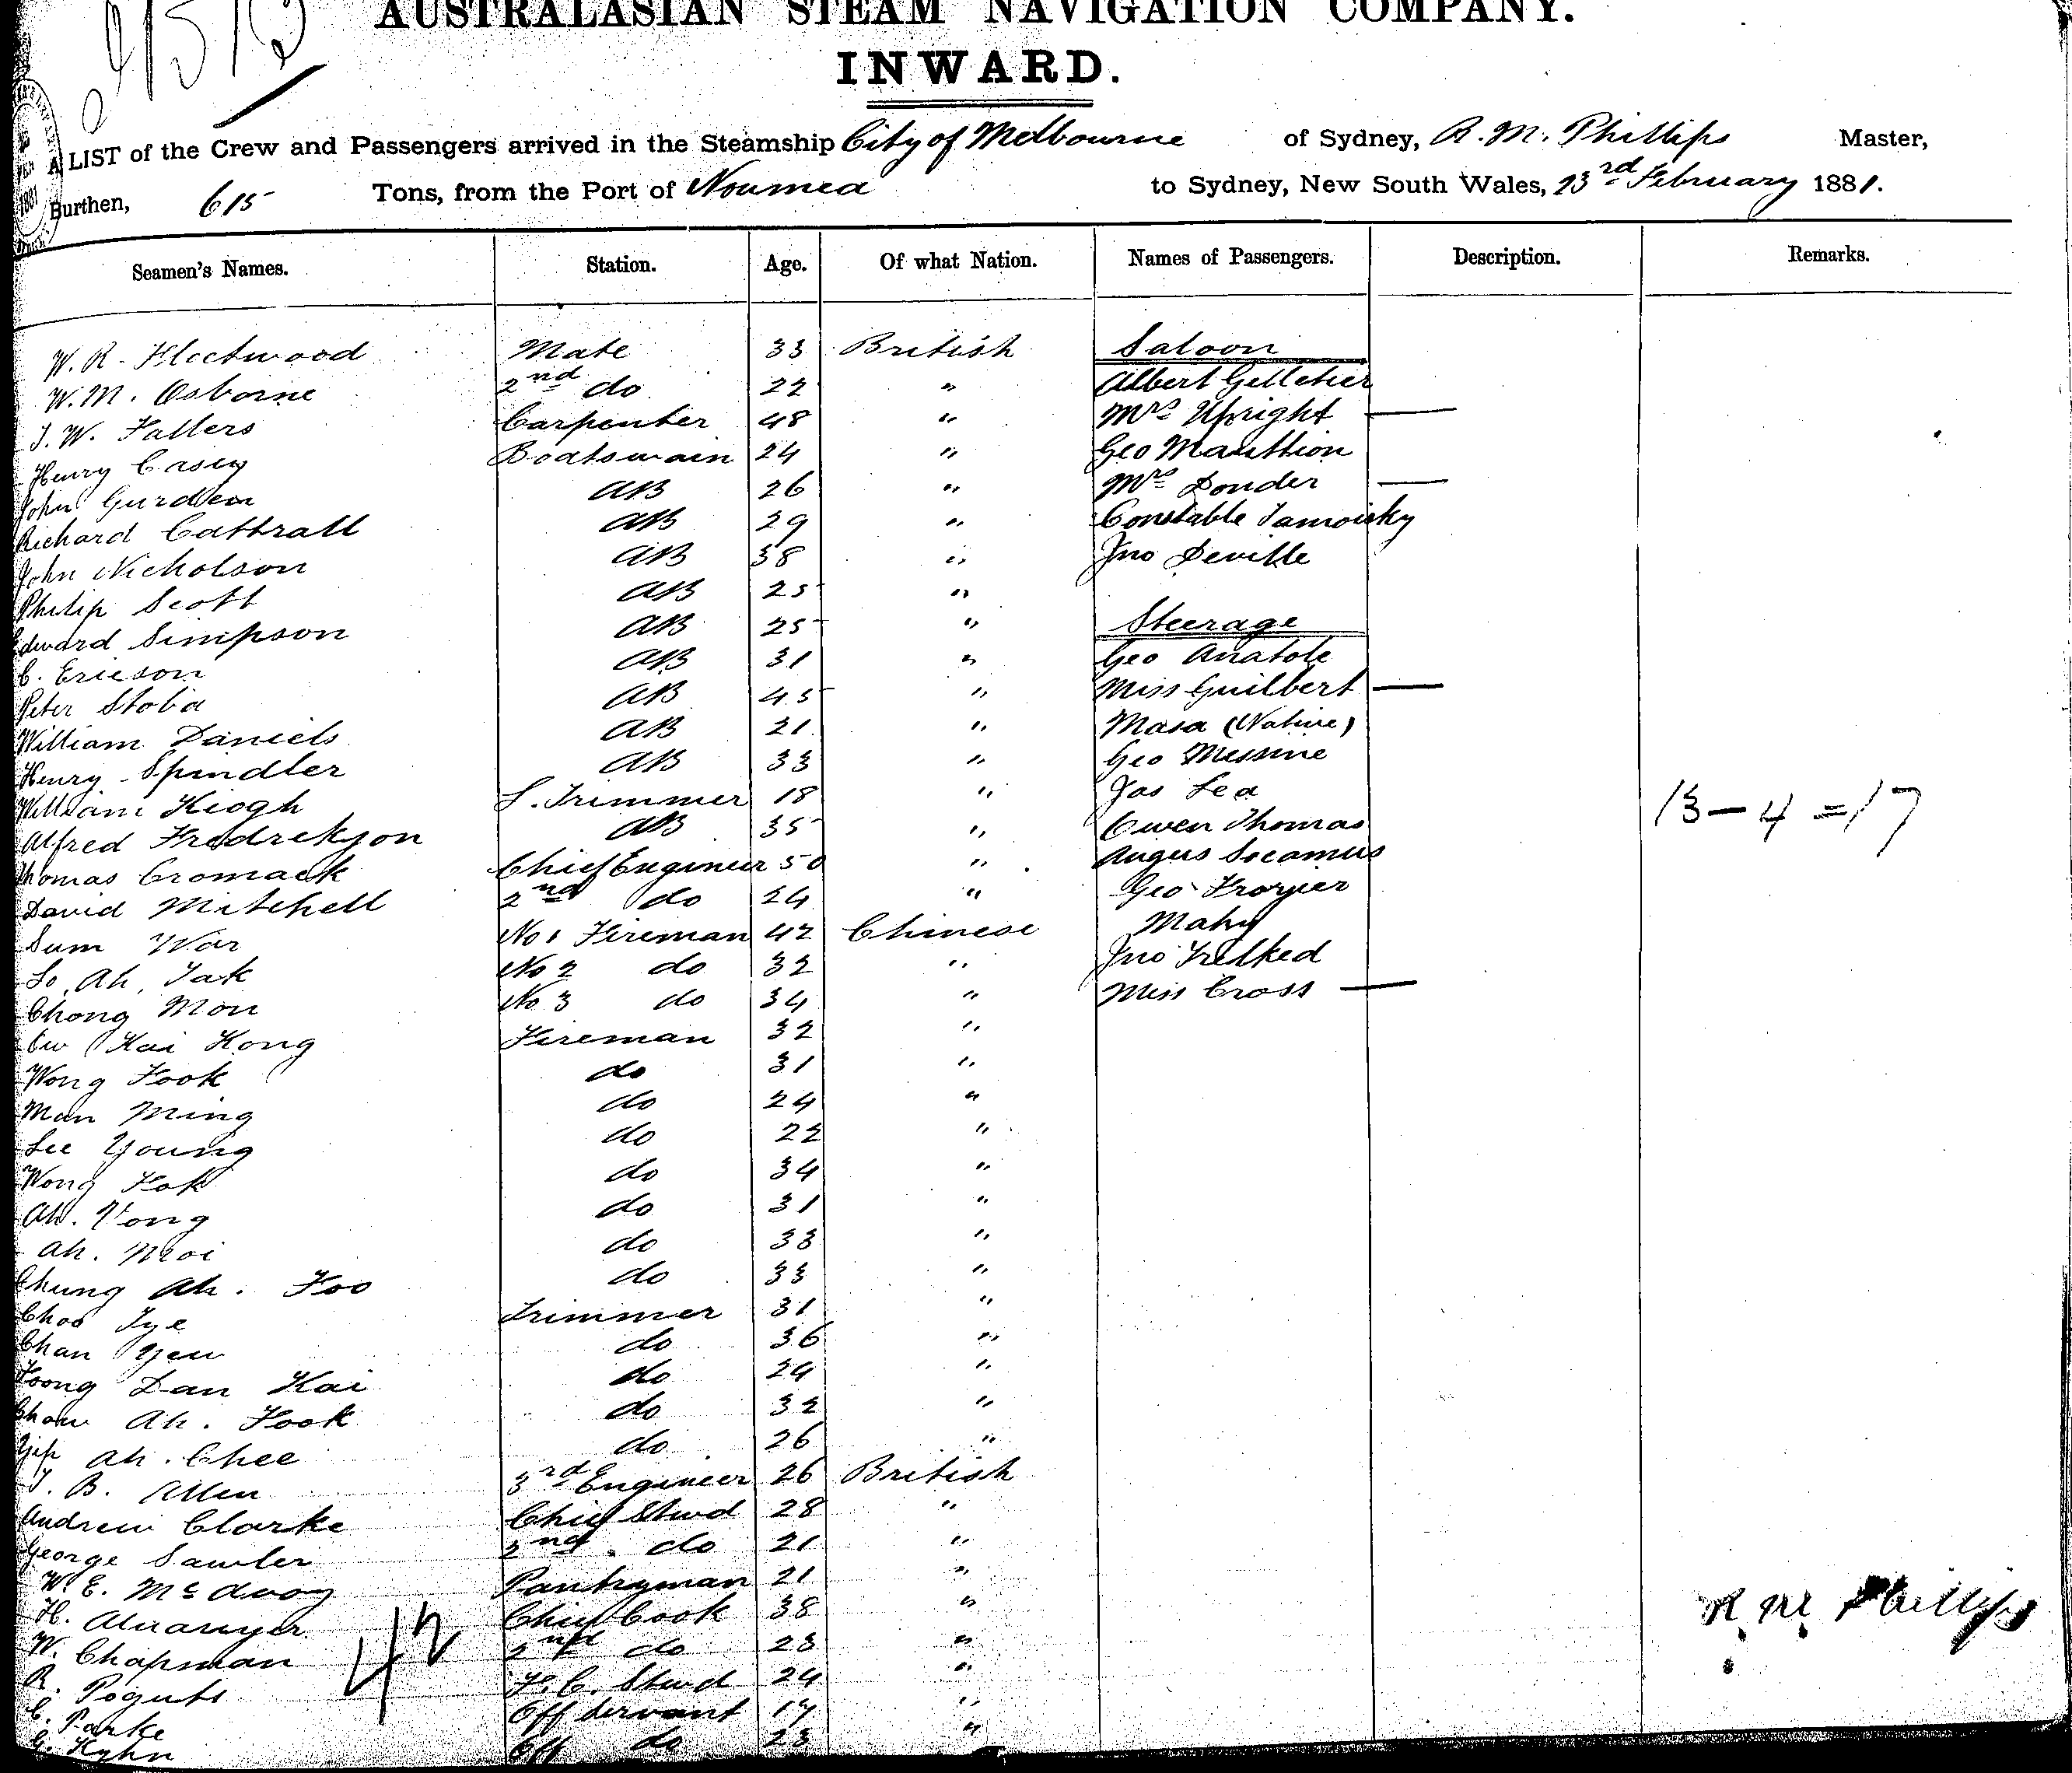 AUSTRALASIAN STEAM NAVIGATION COMPANY.
INWARD.
A LIST of the Crew and Passengers arrived in the Steamship City of Melbourne of Sydney, R. M. Phillips Master,
Burthen, 615 Tons, from the Port of Noumea to Sydney, New South Wales, 23rd February 1881.
Seamen's Names. Station. Age. Of what Nation. Names of Passengers. Description. Remarks.
W. R. Fleetwood Mate 33 British Saloon
W. M. Osborne 2nd do 22 " Albert Gelletier
J. W. Fallers Carpenter 48 " Mrs Upright —
Henry Casey Boatswain 24 " Geo Mauttion
John Gurden AB 26 " Mrs Donder —
Richard Cattrall AB 29 " Constable
John Nicholson AB 38 " Jno Deville
Philip Scott AB 25 "
Edward Simpson AB 25 " Steerage
C. Ericson AB 31 " Geo Anatole
Peter Stoba AB 45 " Miss Guilbert —
William Daniels AB 21 " Masa (Native)
Henry Spindler AB 33 " Geo Messine
William Kiogh S. Trimmer 18 " Jas Lea
Alfred Fredrickson AB 35 " Owen Thomas 13 — 4 = 17
Thomas Cromack Chief Engineer 50 " Angus
David Mitchell 2nd do 24 " Geo Frozier
Sum War No 1 Fireman 42 Chinese Mahy
Lo, Ah, Tak No 2 do 32 " Jno Trelked
Chong Mon No 3 do 34 " Miss Cross —
Ew Kai Kong Fireman 32 "
Wong Fook do 31 "
Man Ming do 24 "
Lee Young do 22 "
Wong Hok do 34 "
Ah. Vong do 31 "
Ah. Moi do 33 "
Chung Ah. Foo do 33 "
Choo Tye Trimmer 31 "
Chan Yew do 36 "
Foong Dan Kai do 29 "
Chow Ah. Fook do 32 "
Yip Ah. Chee do 26 "
T. B. Allen 3rd Engineer 26 British
Andrew Clarke Chief Stwd 28 "
George Sawler 2nd do 21 "
W. E. McAvoy Pantryman 21 "
H. Chief Cook 38 "
W. Chapman 2nd do 23 "
R. F. C. Stwd 24 "
C. Parke Off Servant 17 "
G. Kyhn Off do 23 "
42
R M Phillips